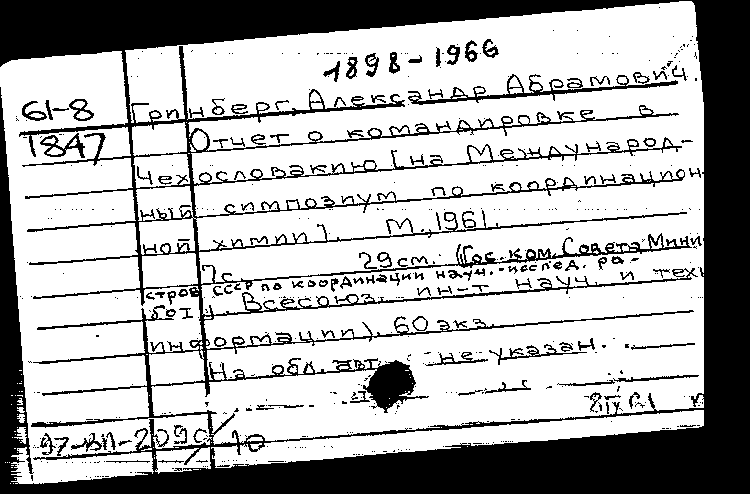 1898-1966
61-8 Гринберг, Александр Абрамович.
1847 Отчет о командировке в
Чехословакию [на Международ-
ный симпозиум по координацион-
ной химии]. М., 1961.
7с. 29см. (Гос. ком. Совета Мини-
стров СССР по координации науч.-исслед. ра-
бот. Всесоюз. ин-т науч. и техн
информации). 60 экз.
На обл. авт. не указан.
97-ВП-2090/10